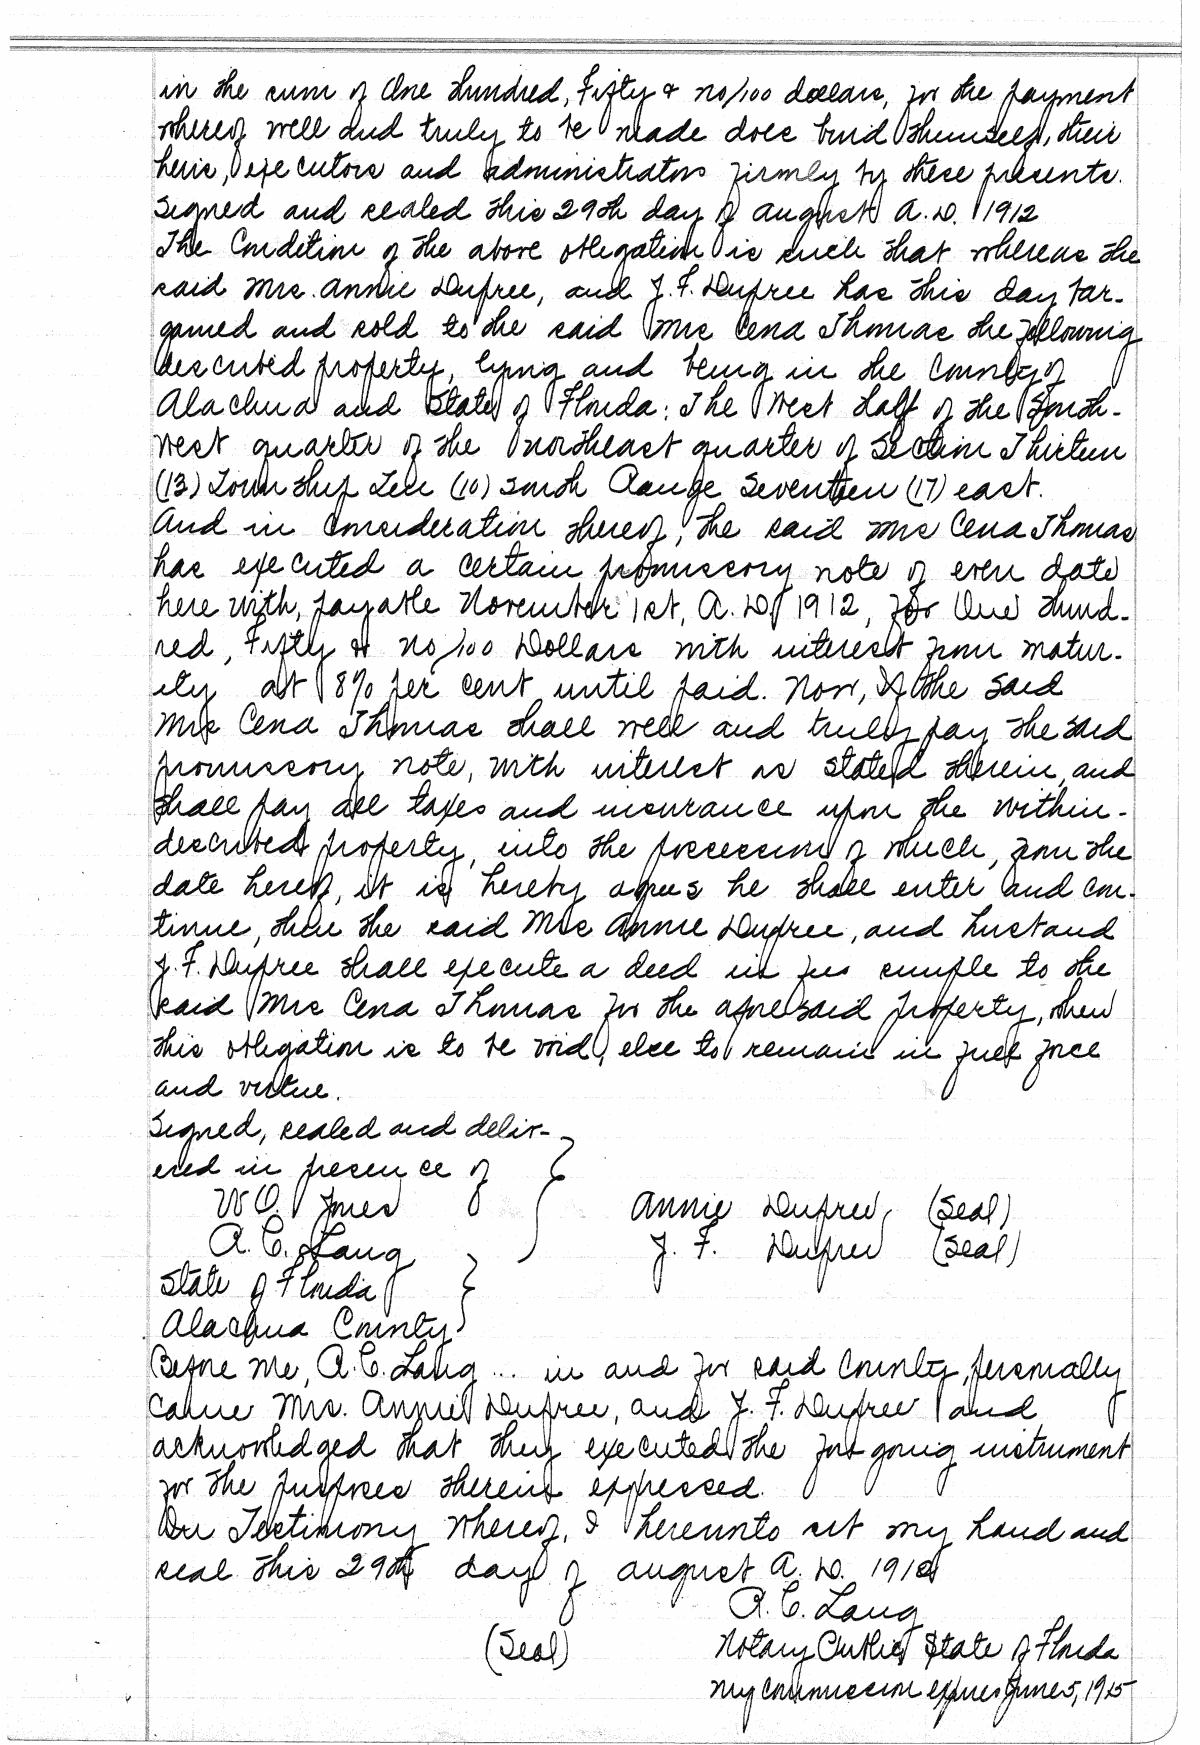 in the sum of One Hundred, Fifty & no/100 dollars, for the payment
whereof well and truly to be made does bind themself, their
heirs, executors and administrators firmly by these presents.
Signed and sealed this 29th day of August A.D. 1912
The Condition of the above obligation is such that whereas the
said Mrs. Annie Dupree, and J. F. Dupree has this day bar-
gained and sold to the said Mrs Cena Thomas the following
described property, lying and being in the County of
Alachua and State of Florida: The West half of the South-
west quarter of the Northeast quarter of Section Thirteen
(13) Township Ten (10) South Range Seventeen (17) east.
And in consideration thereof, the said Mrs Cena Thomas
has executed a certain promissory note of even date
here with, payable November 1st, A.D. 1912, for One Hund-
red, Fifty & no/100 Dollars with interest from matur-
ity at 8% per cent until paid. Now, If the said
Mrs Cena Thomas shall well and truly pay the said
promissory note, with interest as stated therein, and
shall pay all taxes and insurance upon the within-
described property, into the possession of which, from the
date hereof, it is hereby agrees he shall enter and con-
tinue, then the said Mrs Annie Dupree, and husband
J. F. Dupree shall execute a deed in fee simple to the
said Mrs Cena Thomas for the aforesaid property, when
this obligation is to be void, else to remain in full force
and virtue.
Signed, sealed and deliv-
ered in presence of
W O. Jones Annie Dupree, (Seal)
A. C. Lang J. F. Dupree (Seal)
State of Florida
Alachua County
Before Me, A. C. Lang ... in and for said County, personally
came Mrs. Annie Dupree, and J. F. Dupree and
acknowledged that they executed the for going instrument
for the purposes therein expressed.
In Testimony Whereof, I hereunto set my hand and
seal this 29th day of August A. D. 1912
A. C. Lang
(Seal) Notary Public State of Florida
My Commission expires June 5, 1915